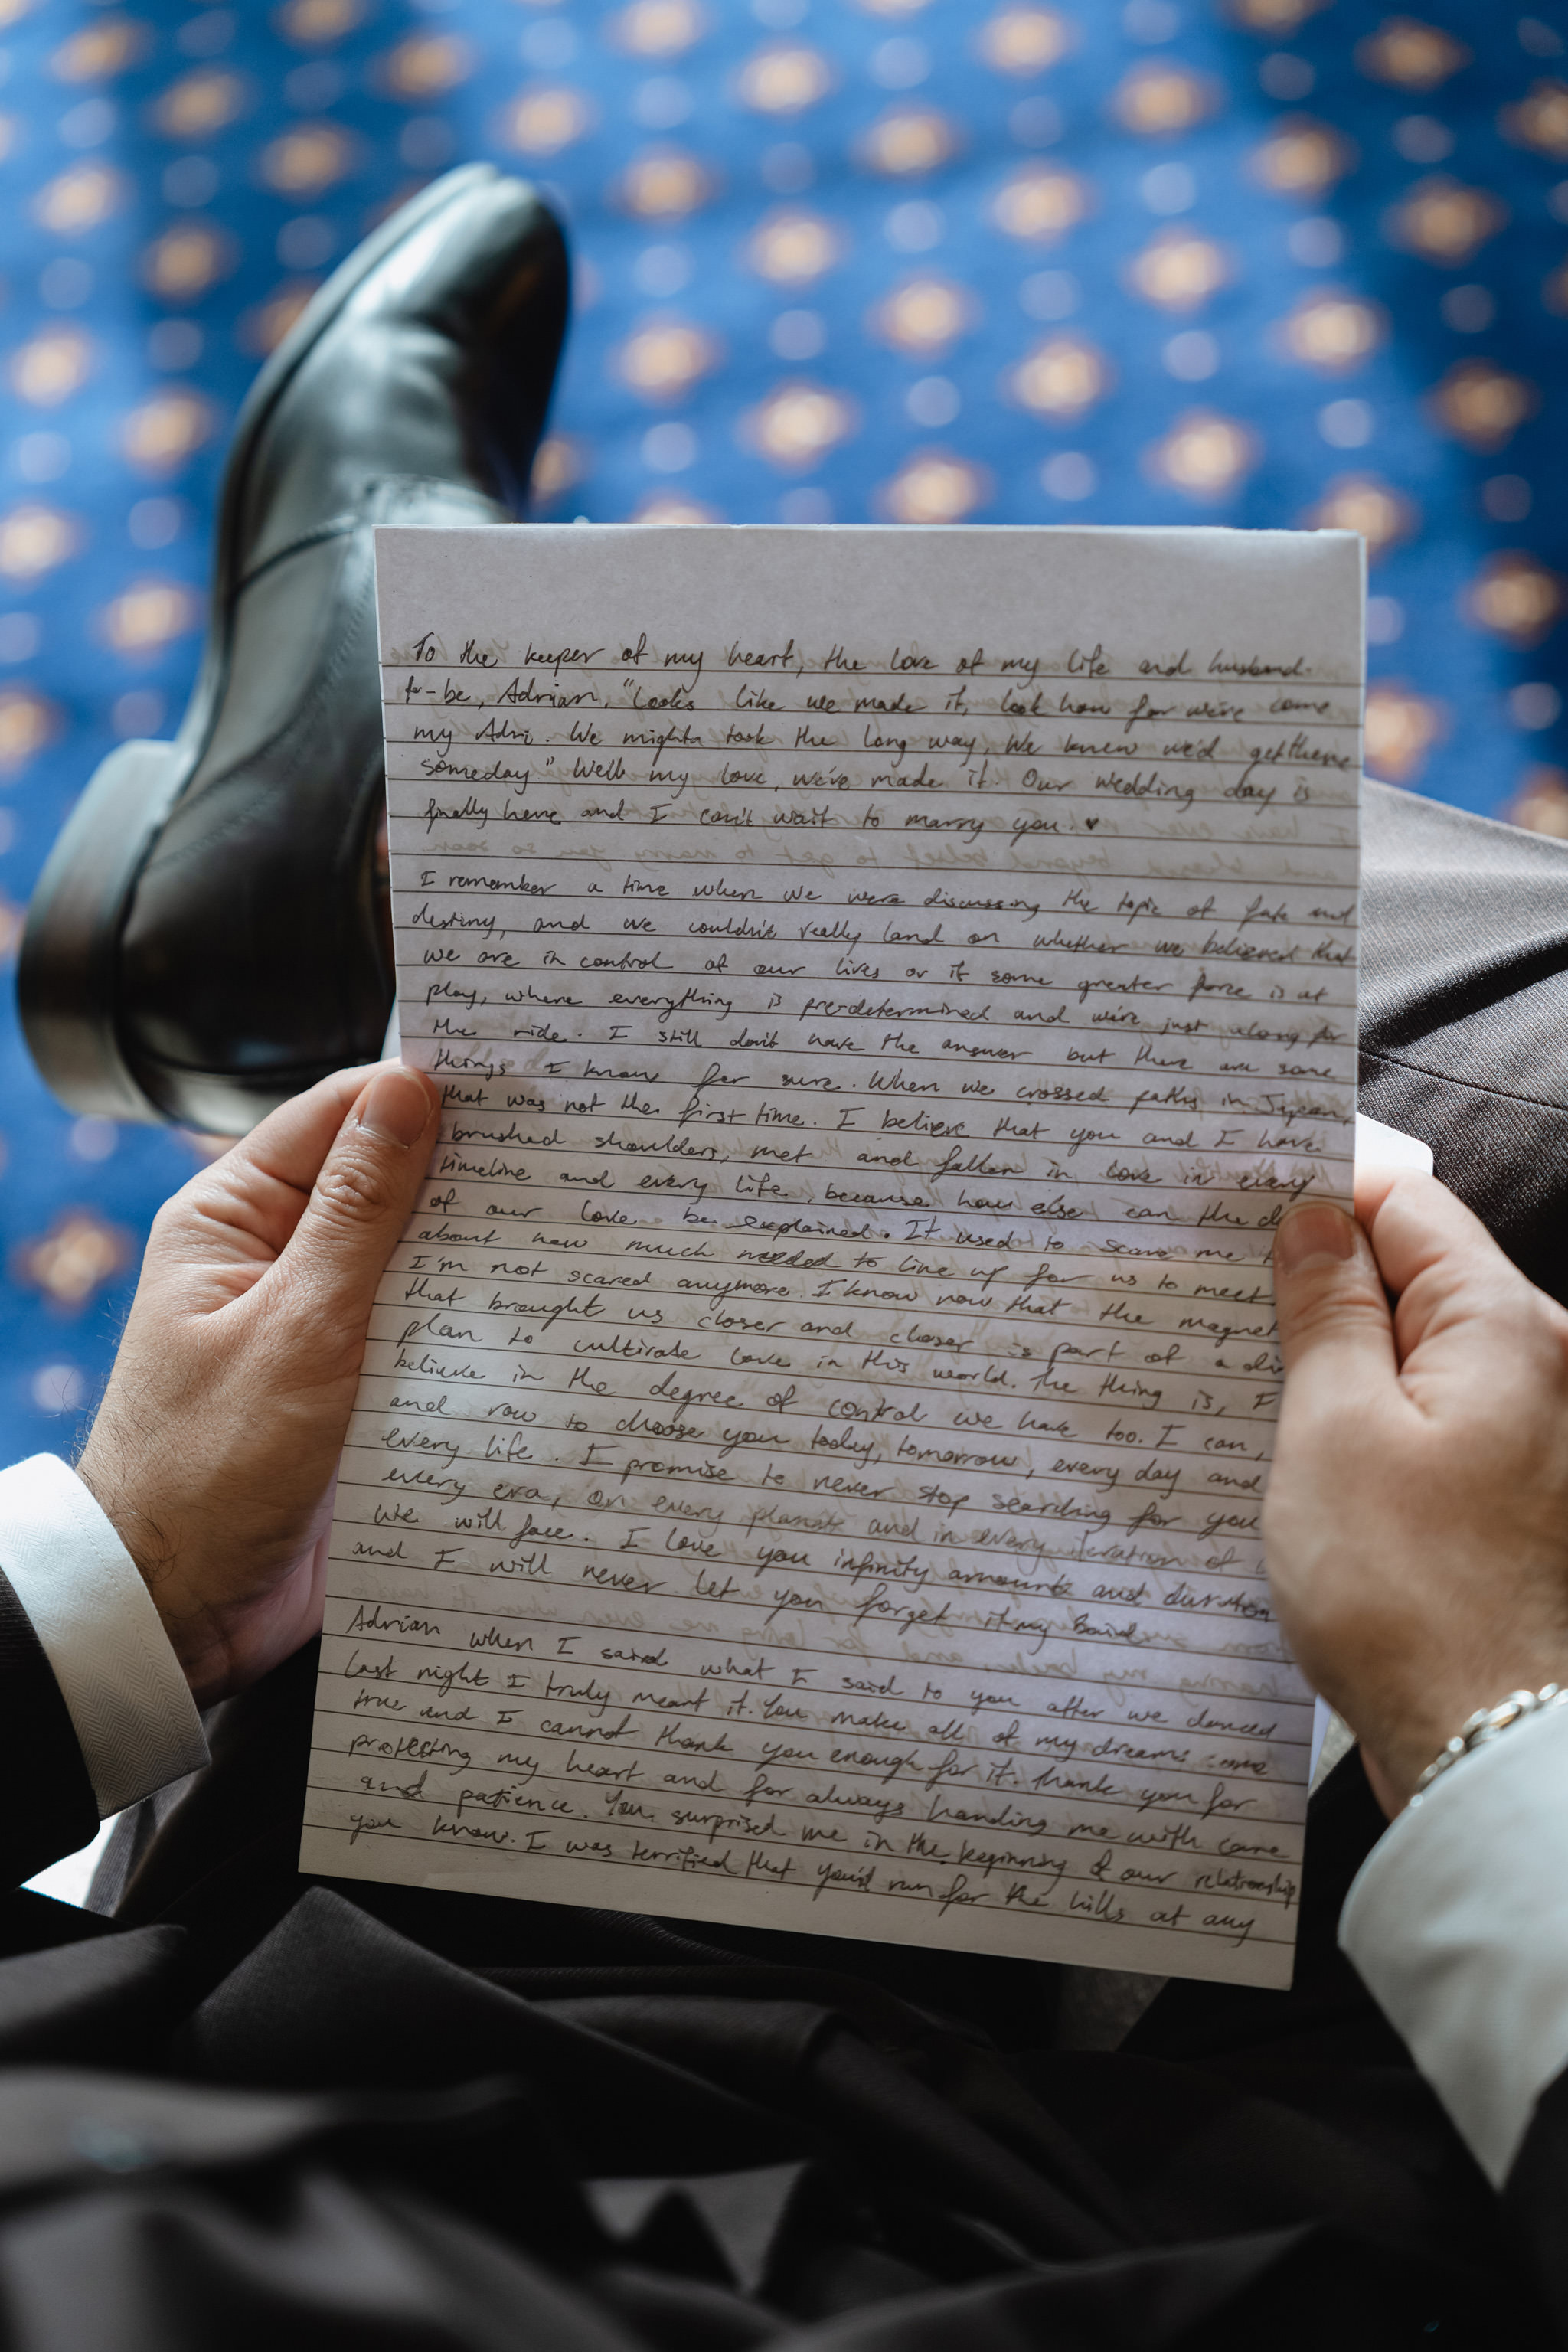 To the keeper of my heart, the love of my life and husband-
to-be, Adrian, "Looks like we made it, look how far we've come
my Adri. We mighta took the long way, We knew we'd get there
someday" Well my love, we've made it. Our wedding day is
finally here and I can't wait to marry you. ♥
I remember a time when we were discussing the topic of fate and
destiny, and we couldn't really land on whether we believed that
we are in control of our lives or if some greater force is at
play, where everything is pre-determined and we're just along for
the ride. I still don't have the answer but there are some
things I know for sure. When we crossed paths in Japan,
that was not the first time. I believe that you and I have
brushed shoulders, met and fallen in love in every
timeline and every life, because how else can the
of our love be explained. It used to scare me
about how much needed to line up for us to meet.
I'm not scared anymore. I know now that the magnet
that brought us closer and closer is part of a
plan to cultivate love in this world. The thing is, I
believe in the degree of control we have too. I can,
and vow to choose you today, tomorrow, every day and
every life. I promise to never stop searching for you
every era, on every planet and in every iteration of
we will face. I love you infinity amounts and duration
and I will never let you forget it my
Adrian when I said what I said to you after we danced
last night I truly meant it. You make all of my dreams come
true and I cannot thank you enough for it. Thank you for
protecting my heart and for always handing me with care
and patience. You surprised me in the beginning of our relationship
you know. I was terrified that you'd run for the hills at any